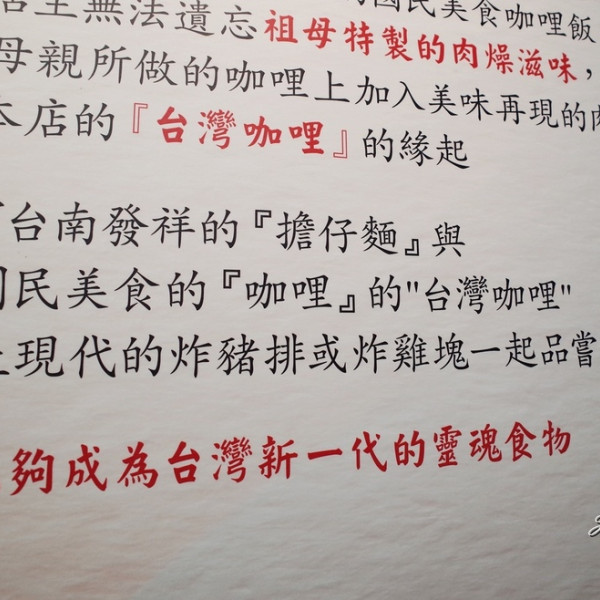 店主無法遺忘祖母特製的肉燥滋味，
國民美食咖哩飯
母親所做的咖哩上加入美味再現的肉
本店的『台灣咖哩』的緣起
台南發祥的『擔仔麵』與
國民美食的『咖哩』的"台灣咖哩"
現代的炸豬排或炸雞塊一起品嘗
夠成為台灣新一代的靈魂食物